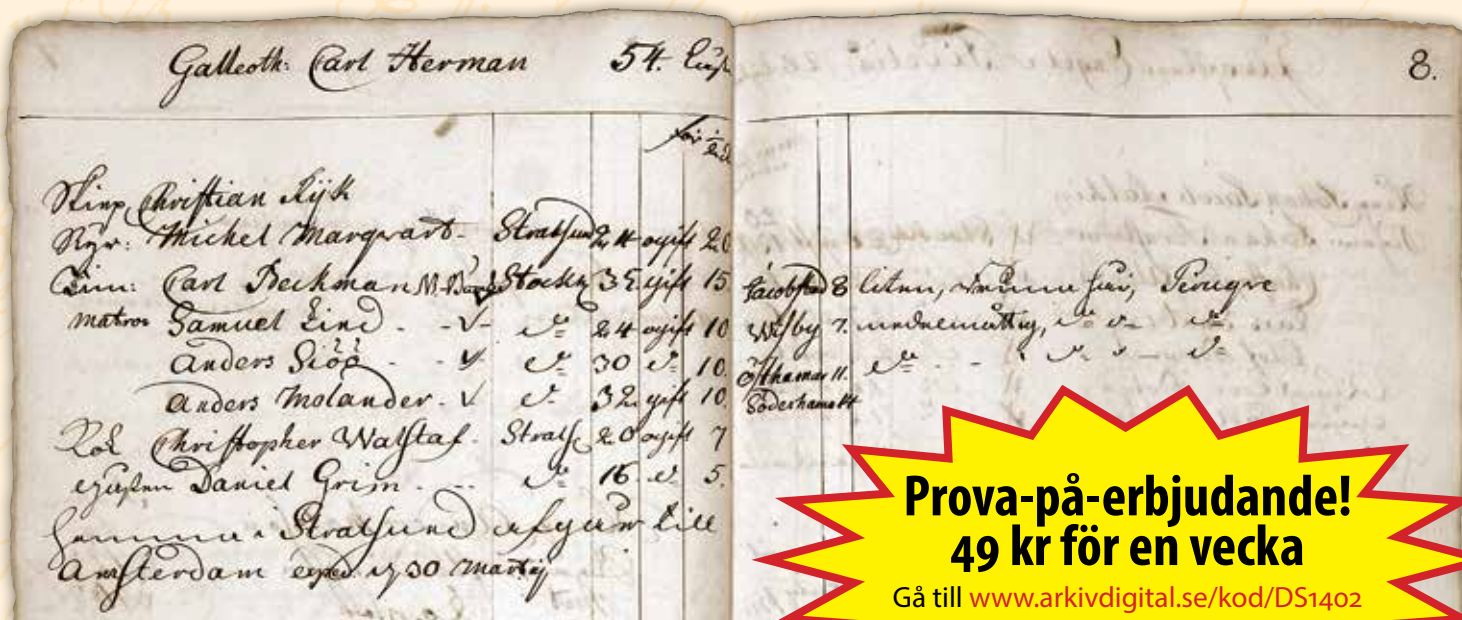 Galleoth: Carl Herman 54. Läst
8.
för
Skipp Christian Rijk
Styr: Michel Marqvart - Stralsund 24 ogift 20
Timm: Carl Beckman Stockh 35 gift 15 Jacobstad 8 liten, hår, Perugve
Matros Samuel Lind - √ - do 24 ogift 10 Wisby 7. medelmåttig, do do
Anders Siöö - √ do 30 do 10. Östhamar 11. do - do do
Anders Molander - √ do 32 gift 10. Söderhamn 14
Kok Christopher Walstaf - Strals 20 ogift 7
Daniel Grim - do 16 do 5.
hemma i Stralsund till
Amsterdam exped. 30 Martij
Prova-på-erbjudande!
49 kr för en vecka
Gå till www.arkivdigital.se/kod/DS1402